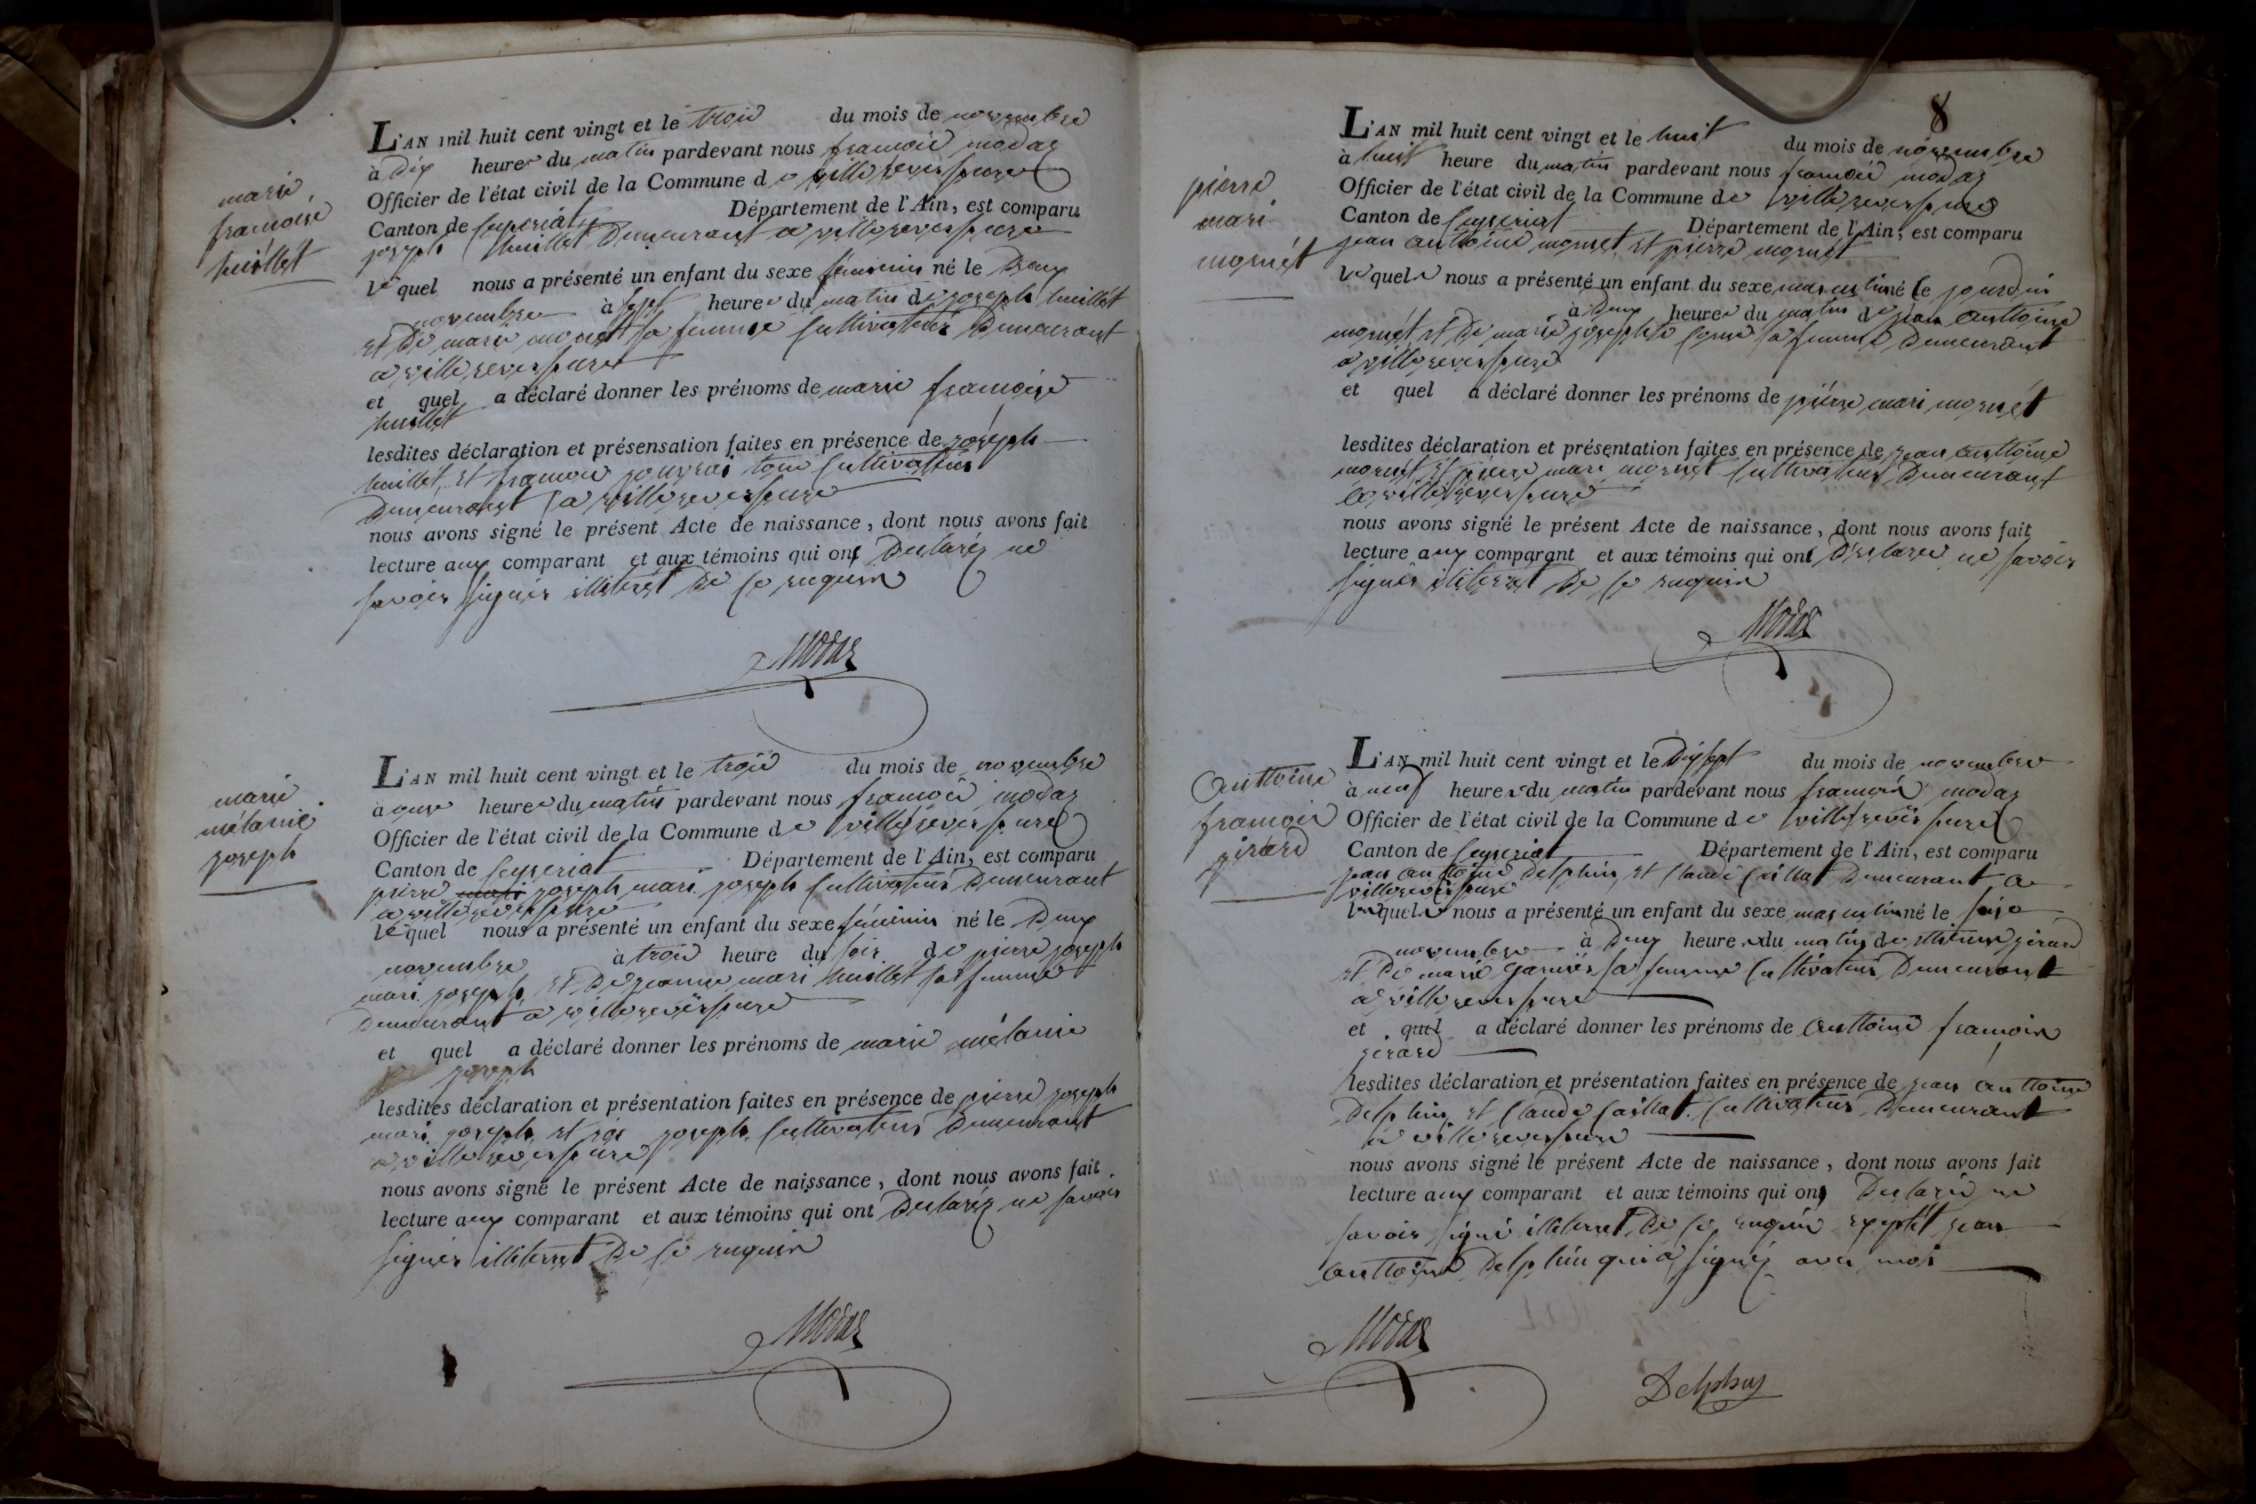 marie
francoise
huillet
L'AN mil huit cent vingt et le trois du mois de novembre
à dix heures du matin pardevant nous francois modas
Officier de l'état civil de la Commune de villereversure
Canton de Ceyseriat Département de l'Ain, est comparu
joseph huillet Demeurant a villereversure
lequel nous a présenté un enfant du sexe féminin né le Deux
novembre à sept heures du matin de joseph huillet
et De marie mornet sa femme Cultivateur Demeurant
a villereversure
et quel a déclaré donner les prénoms de marie francoise
huillet
lesdites déclaration et présensation faites en présence de joseph
huillet et francois tous Cultivateurs
Demeurant a villereversure
nous avons signé le présent Acte de naissance, dont nous avons fait
lecture aux comparant et aux témoins qui ont Declaréz ne
savoir signér illiteret De ce requin
Modas
marie
mélanie
joseph
L'AN mil huit cent vingt et le trois du mois de novembre
à onze heures du matin pardevant nous francois modas
Officier de l'état civil de la Commune de villereversure
Canton de Ceyseriat Département de l'Ain, est comparu
pierre joseph mari joseph Cultivateur Demeurant
a villereversure
lequel nous a présenté un enfant du sexe féminin né le Deux
novembre à trois heure du soir de pierre joseph
mari joseph et De jeanne mari huillet sa femme
Demeurant a villereversure
et quel a déclaré donner les prénoms de marie mélanie
joseph
lesdites déclaration et présentation faites en présence de pierre joseph
mari joseph et joseph Cultivateurs Demeurant
a villereversure
nous avons signé le présent Acte de naissance, dont nous avons fait
lecture aux comparant et aux témoins qui ont Declaréz ne savoir
signér illiteret De ce requin
Modas
8
pierre
mari
mornét
L'AN mil huit cent vingt et le huit du mois de novembre
à huit heure du matin pardevant nous francois modas
Officier de l'état civil de la Commune de villereversure
Canton de Ceyseriat Département de l'Ain, est comparu
jean anttoine mornet et pierre mornet
lequels nous a présenté un enfant du sexe masculin né le jourdui
à Deux heures du matin de jean anttoine
mornét et De marie josephte sa femme Demeurant
a villereversure
et quel a déclaré donner les prénoms de piérre mari mornét
lesdites déclaration et présentation faites en présence de jean anttoine
mornet et pierre mari mornet Cultivateurs Demeurant
a villereversure
nous avons signé le présent Acte de naissance, dont nous avons fait
lecture aux comparant et aux témoins qui ont Declarés ne savoir
signér illiteret De ce requin
Modas
Anttoine
francois
girard
L'AN mil huit cent vingt et le Dixsept du mois de novembre
à neuf heures du matin pardevant nous francois modas
Officier de l'état civil de la Commune de villereversure
Canton de Ceyseriat Département de l'Ain, est comparu
jean anttoine Delphin et Claude Caillat Demeurant a
villereversure
lesquels nous a présenté un enfant du sexe masculin né le seize
novembre à Deux heures du matin de ettienne girard
et De marie garnier sa femme Cultivateur Demeurant
a villereversure
et quel a déclaré donner les prénoms de Anttoine francois
girard
lesdites déclaration et présentation faites en présence de jean Anttoine
Delphin et Claude Caillat Cultivateurs Demeurant
a villereversure
nous avons signé le présent Acte de naissance, dont nous avons fait
lecture aux comparant et aux témoins qui ont Declarés ne
savoir signé illiterret De ce requis exeptét jean
anttoine Delphin qui a signéz avec moi
Modas
Delphin